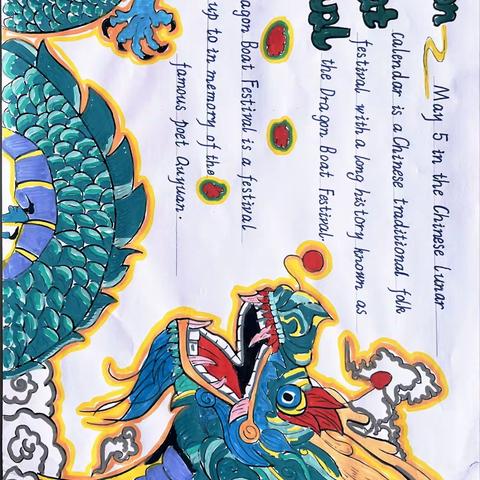 May 5 in the Chinese Lunar
calendar is a Chinese traditional folk
festival with a long history known as
the Dragon Boat Festival.
agon Boat Festival is a festival
up to in memory of the
famous poet Quyuan.